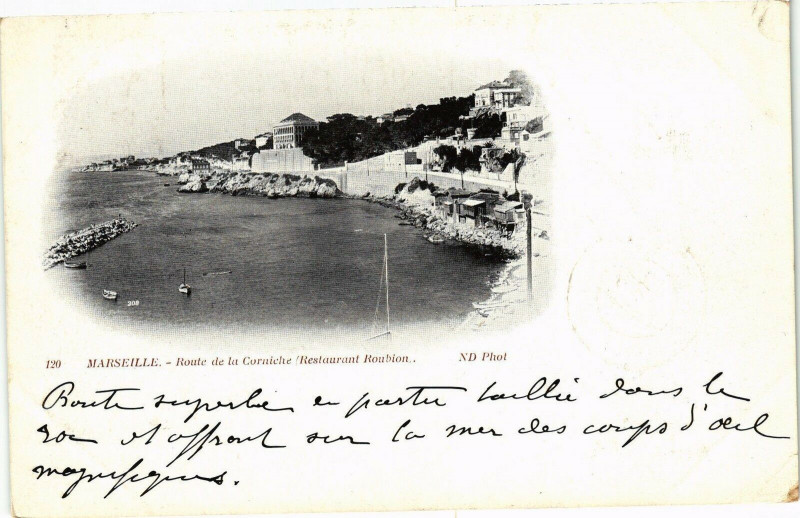 308
120 MARSEILLE. - Route de la Corniche (Restaurant Roubion).
ND Phot
Route superbe en partie taillée dans le
roc et offrant sur la mer des coups d'œil
magnifiques.